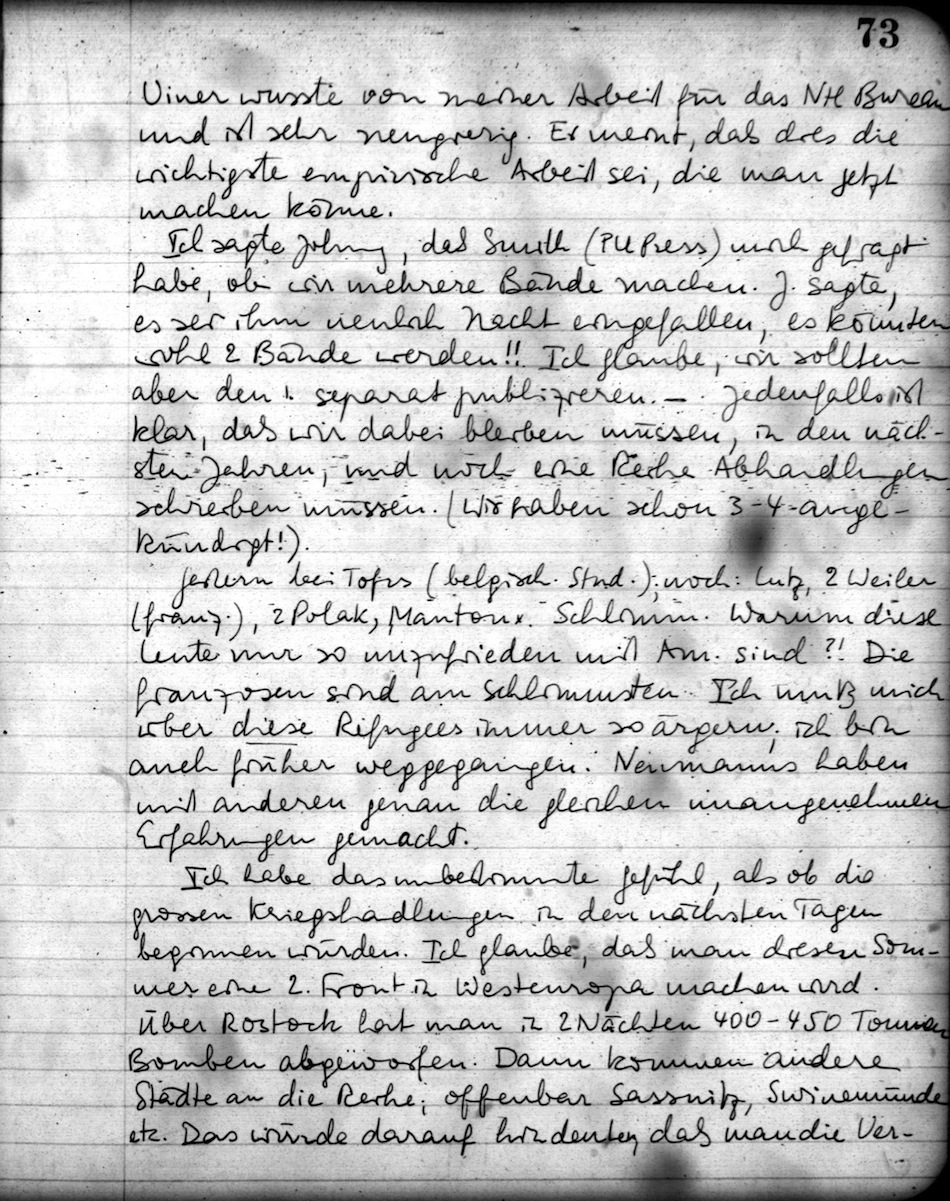 73
Viner wusste von meiner Arbeit für das Bureau
und ist sehr neugierig. Er meint, daß dies die
wichtigste empirische Arbeit sei, die man jetzt
machen könne.
Ich sagte Johnny, daß Smith (PU Press) mich gefragt
habe, ob wir mehrere Bände machen. J. sagte,
es sei ihm neulich Nacht eingefallen, es könnten
wohl 2 Bände werden!! Ich glaube, wir sollten
aber den 1. separat publizieren. — . Jedenfalls ist
klar, daß wir dabei bleiben müssen, in den näch-
sten Jahren, und noch eine Reihe Abhandlungen
schreiben müssen. (Wir haben schon 3-4 ange-
kündigt!).
Gestern bei (belgisch. Stud.); noch: Lutz, 2 Weiler
(franz.), 2 Polak, Mantoux. Schlimm. Warum diese
Leute nur so unzufrieden mit Am. sind?! Die
Franzosen sind am Schlimmsten. Ich muß mich
über diese Refugees immer so ärgern; ich bin
auch früher weggegangen. Neumanns haben
mit anderen genau die gleichen unangenehmen
Erfahrungen gemacht.
Ich habe das unbestimmte Gefühl, als ob die
grossen Kriegshandlungen in den nächsten Tagen
beginnen würden. Ich glaube, daß man diesen Som-
mer eine 2. Front in Westeuropa machen wird.
Über Rostock hat man in 2 Nächten 400-450 Tonnen
Bomben abgeworfen. Dann kommen andere
Städte an die Reihe; offenbar Sassnitz, Swinemünde
etc. Das würde darauf hindeuten, daß man die Ver-